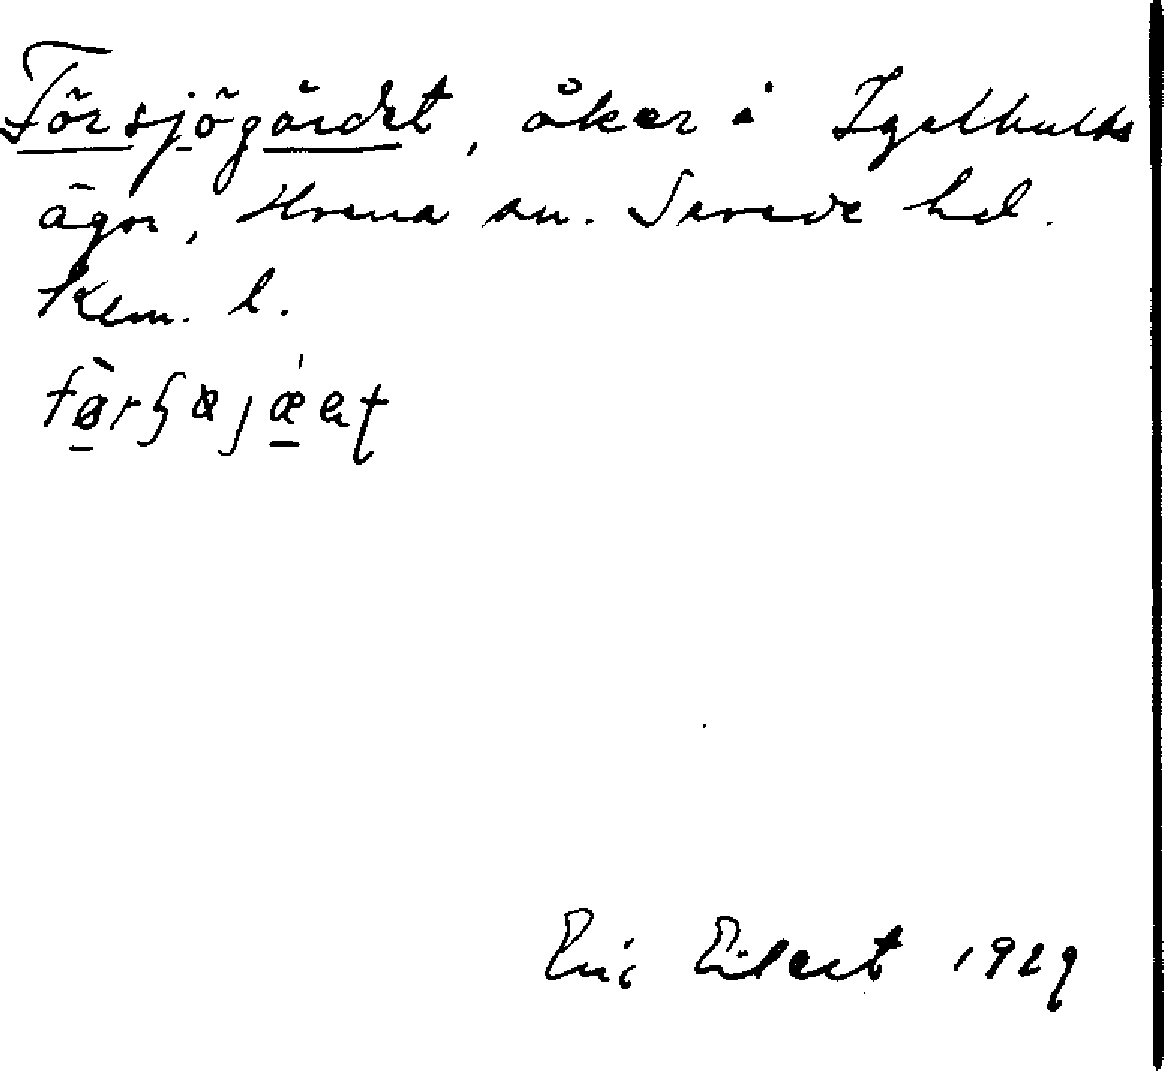 Försjögärdet, åker i Igelhults
ägor, Hvena sn. Sevede hd.
Klm. l.
Eric Eilert 1929